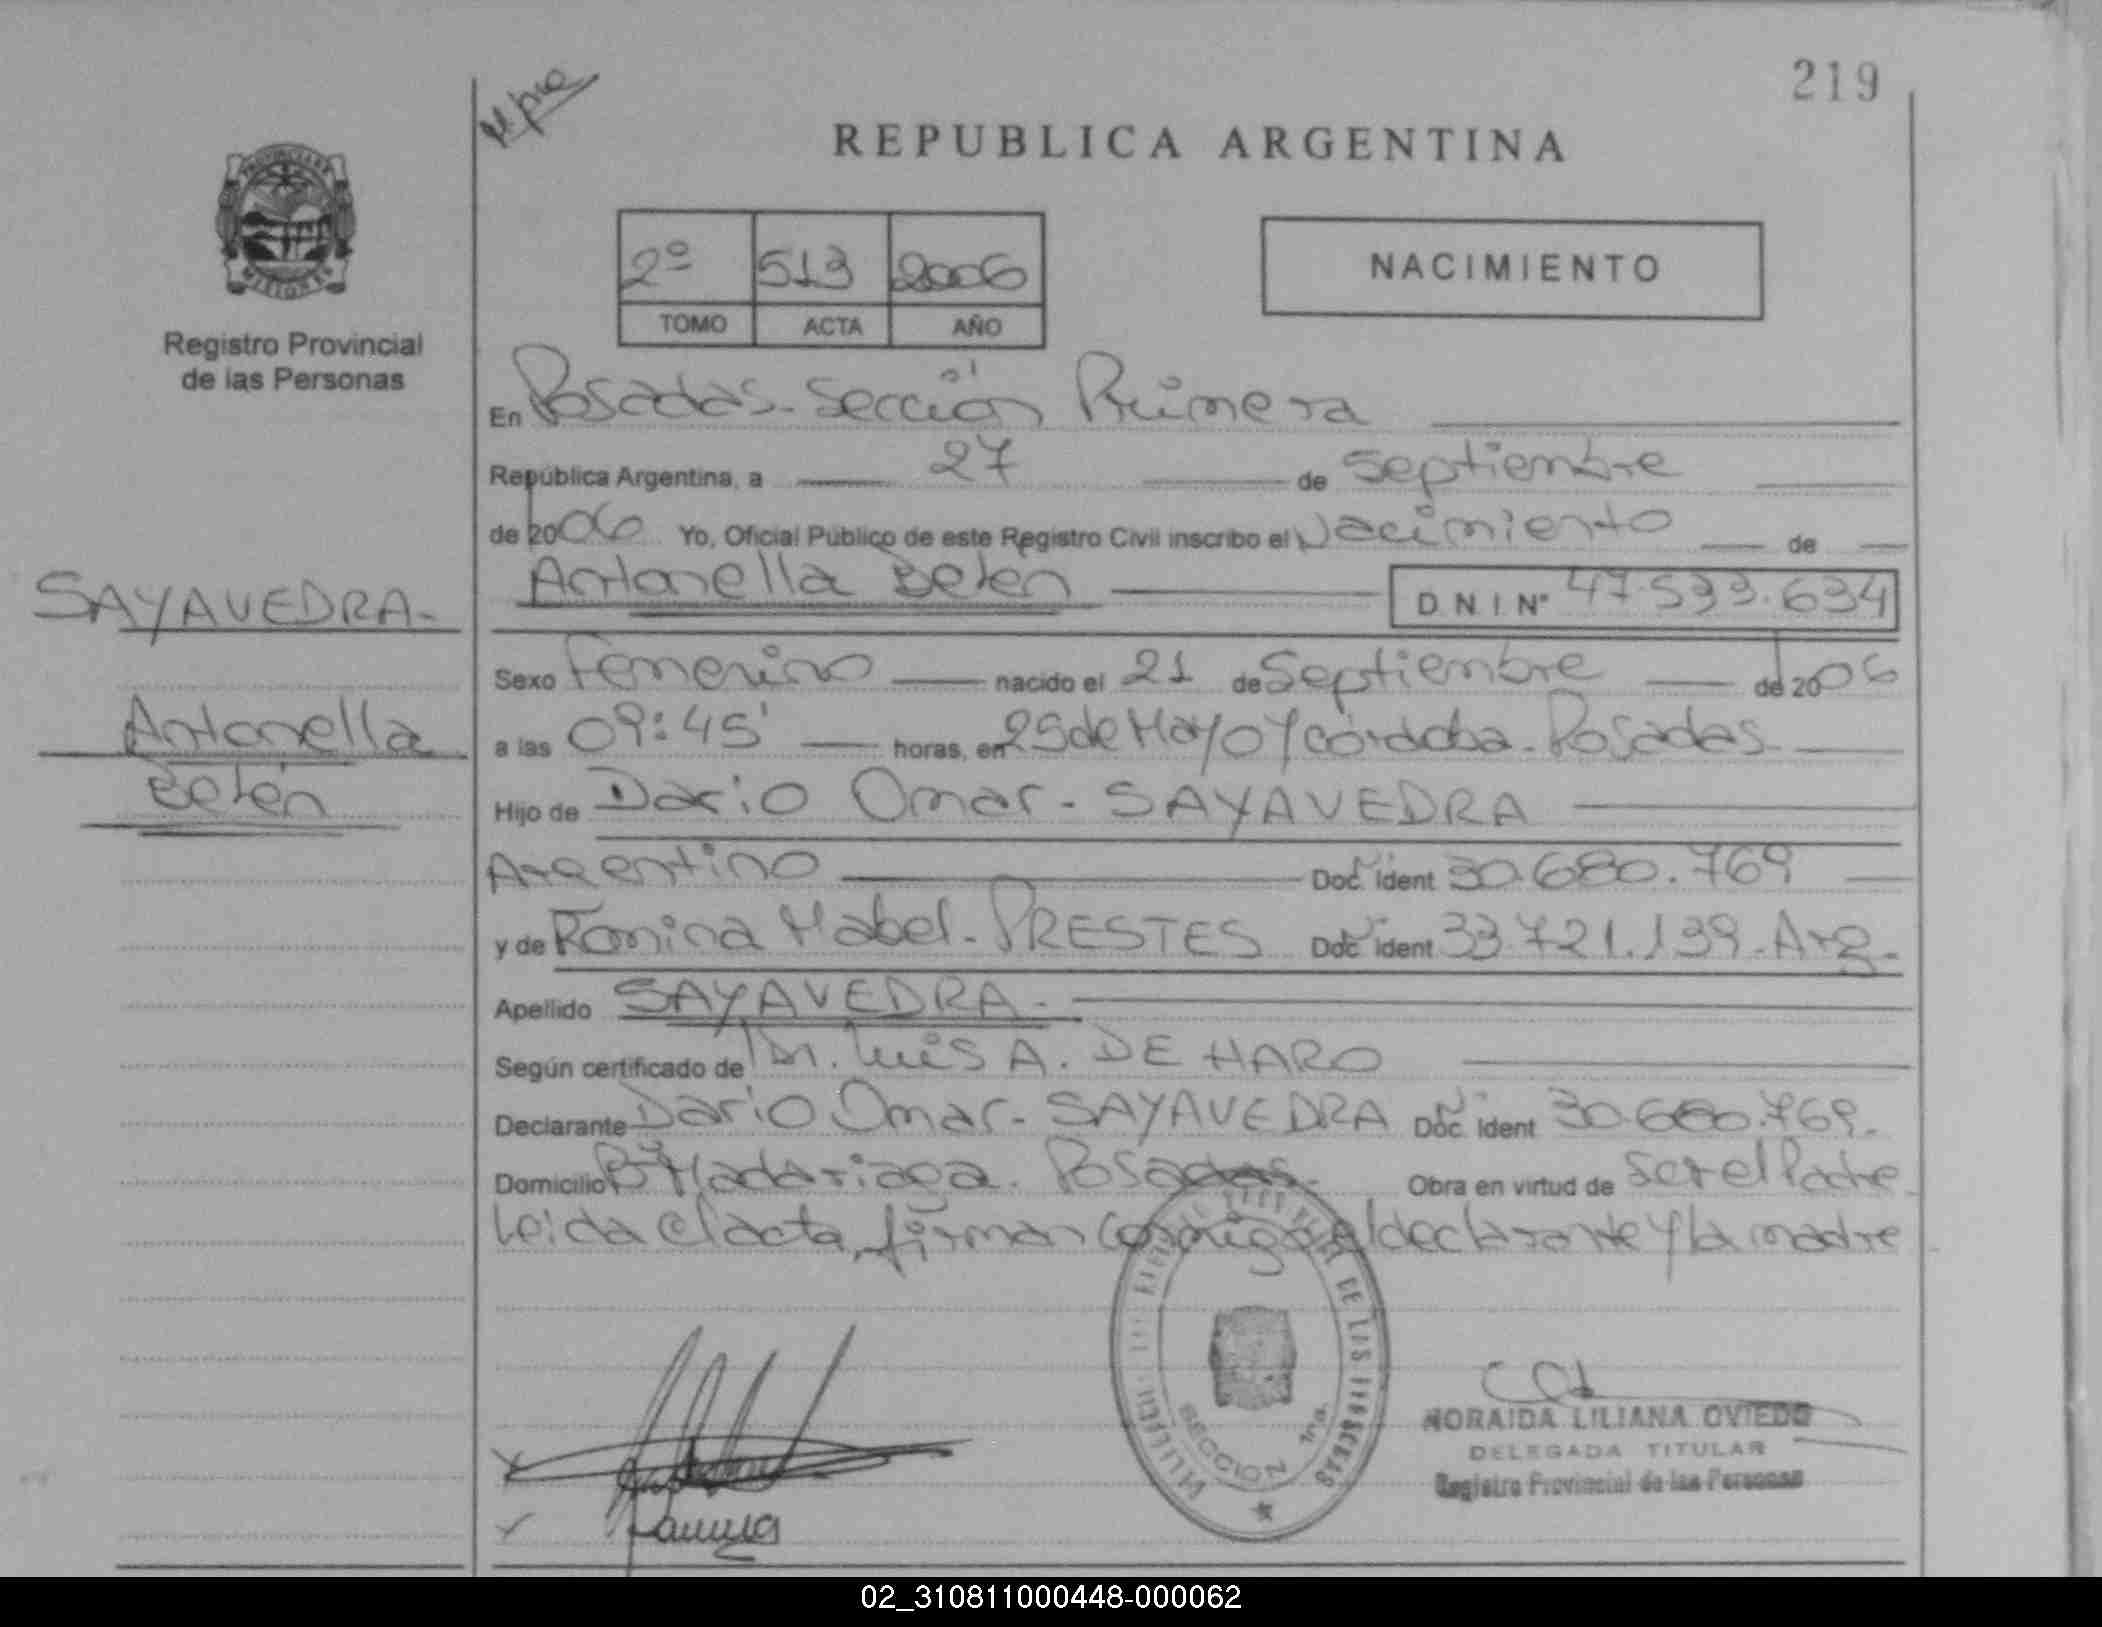 219
REPUBLICA ARGENTINA
2º 513 2006
TOMO ACTA AÑO
NACIMIENTO
PROVINCIA DE
MISIONES
Registro Provincial
de las Personas
En Posadas - Sección Primera
República Argentina, a 27 de Septiembre
de 2006 Yo, Oficial Público de este Registro Civil inscribo el Nacimiento de
Antonella Belén D N I Nº 47.533.634
SAYAVEDRA -
Antonella
Belén
Sexo Femenino nacido el 21 de Septiembre de 2006
a las 09:45' horas, en 25 de Mayo y Córdoba - Posadas
Hijo de Dario Omar - SAYAVEDRA
Argentino Doc. ident 30.680.769
y de Romina Mabel - PRESTES Doc. ident 33.721.139 - Arg -
Apellido SAYAVEDRA -
Según certificado de Dr. Luis A. DE HARO
Declarante Dario Omar - SAYAVEDRA Doc. ident 30.680.769 -
Domicilio Bº Madariaga - Posadas - Obra en virtud de ser el Padre -
Leida el acta, firman conmigo el declarante y la madre
DE LAS PERSONAS
SECCION 1ra.
NORAIDA LILIANA OVIEDO
DELEGADA TITULAR
Registro Provincial de las Personas
02_310811000448-000062